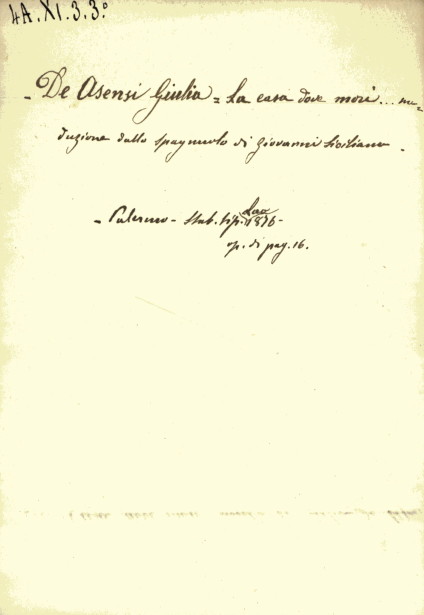 4A.XI.3.3.°
- De Asensi Giulia = La casa dove morì...
duzione dallo spagnuolo di Giovanni Siciliano.
Lao
- Palermo - Stab. tip. 1876 -
op. di pag. 16.